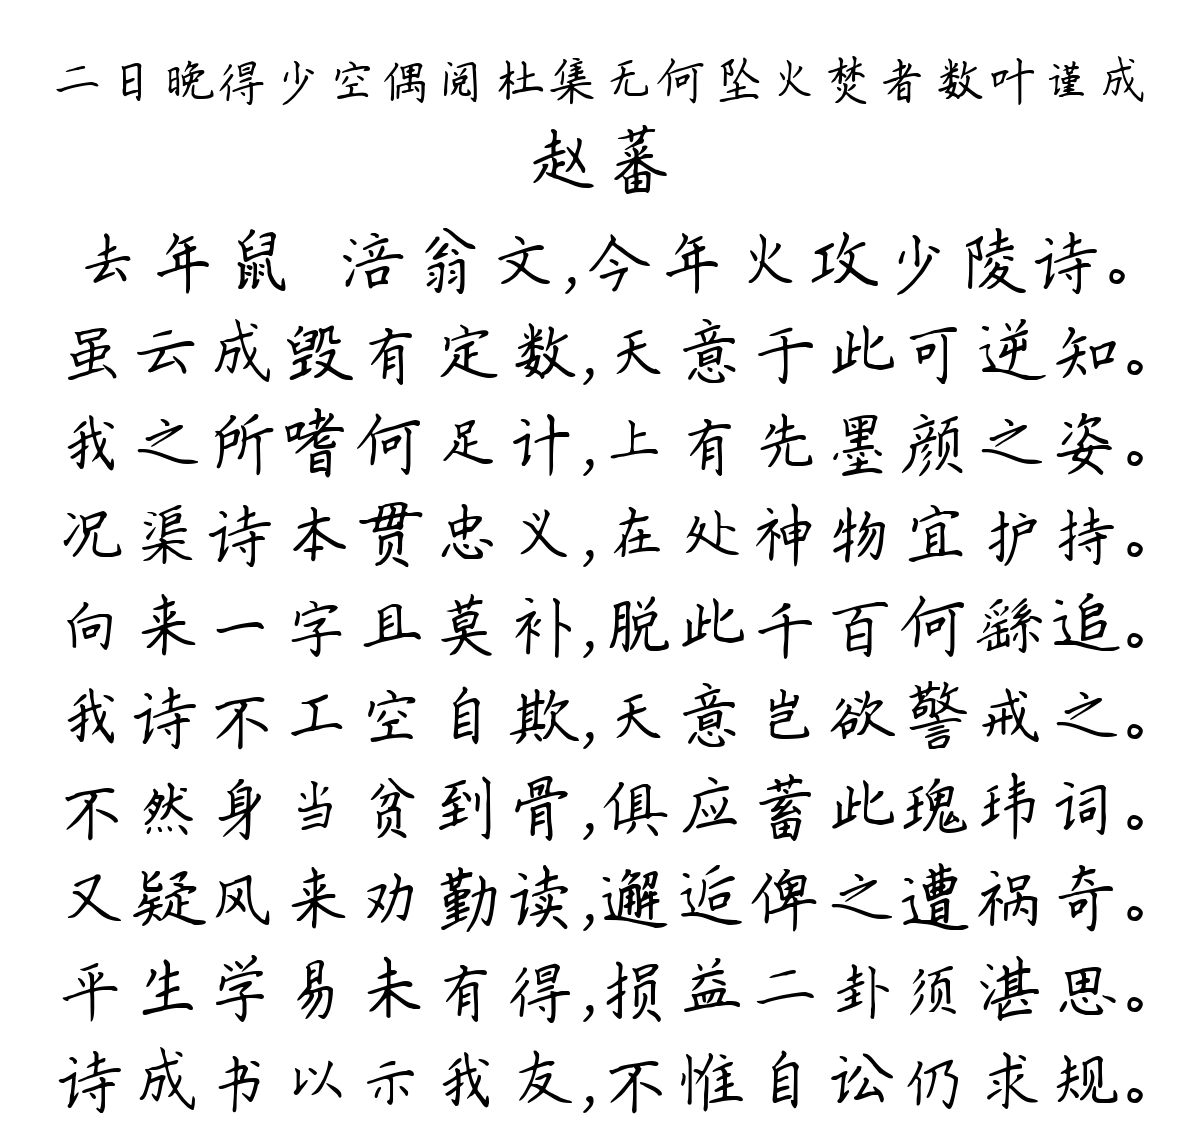 二日晚得少空偶阅杜集无何坠火焚者数叶谨成
赵蕃
去年鼠 涪翁文,今年火攻少陵诗。
虽云成毁有定数,天意于此可逆知。
我之所嗜何足计,上有先墨颜之姿。
况渠诗本贯忠义,在处神物宜护持。
向来一字且莫补,脱此千百何繇追。
我诗不工空自欺,天意岂欲警戒之。
不然身当贫到骨,俱应蓄此瑰玮词。
又疑风来劝勤读,邂逅俾之遭祸奇。
平生学易未有得,损益二卦须湛思。
诗成书以示我友,不惟自讼仍求规。